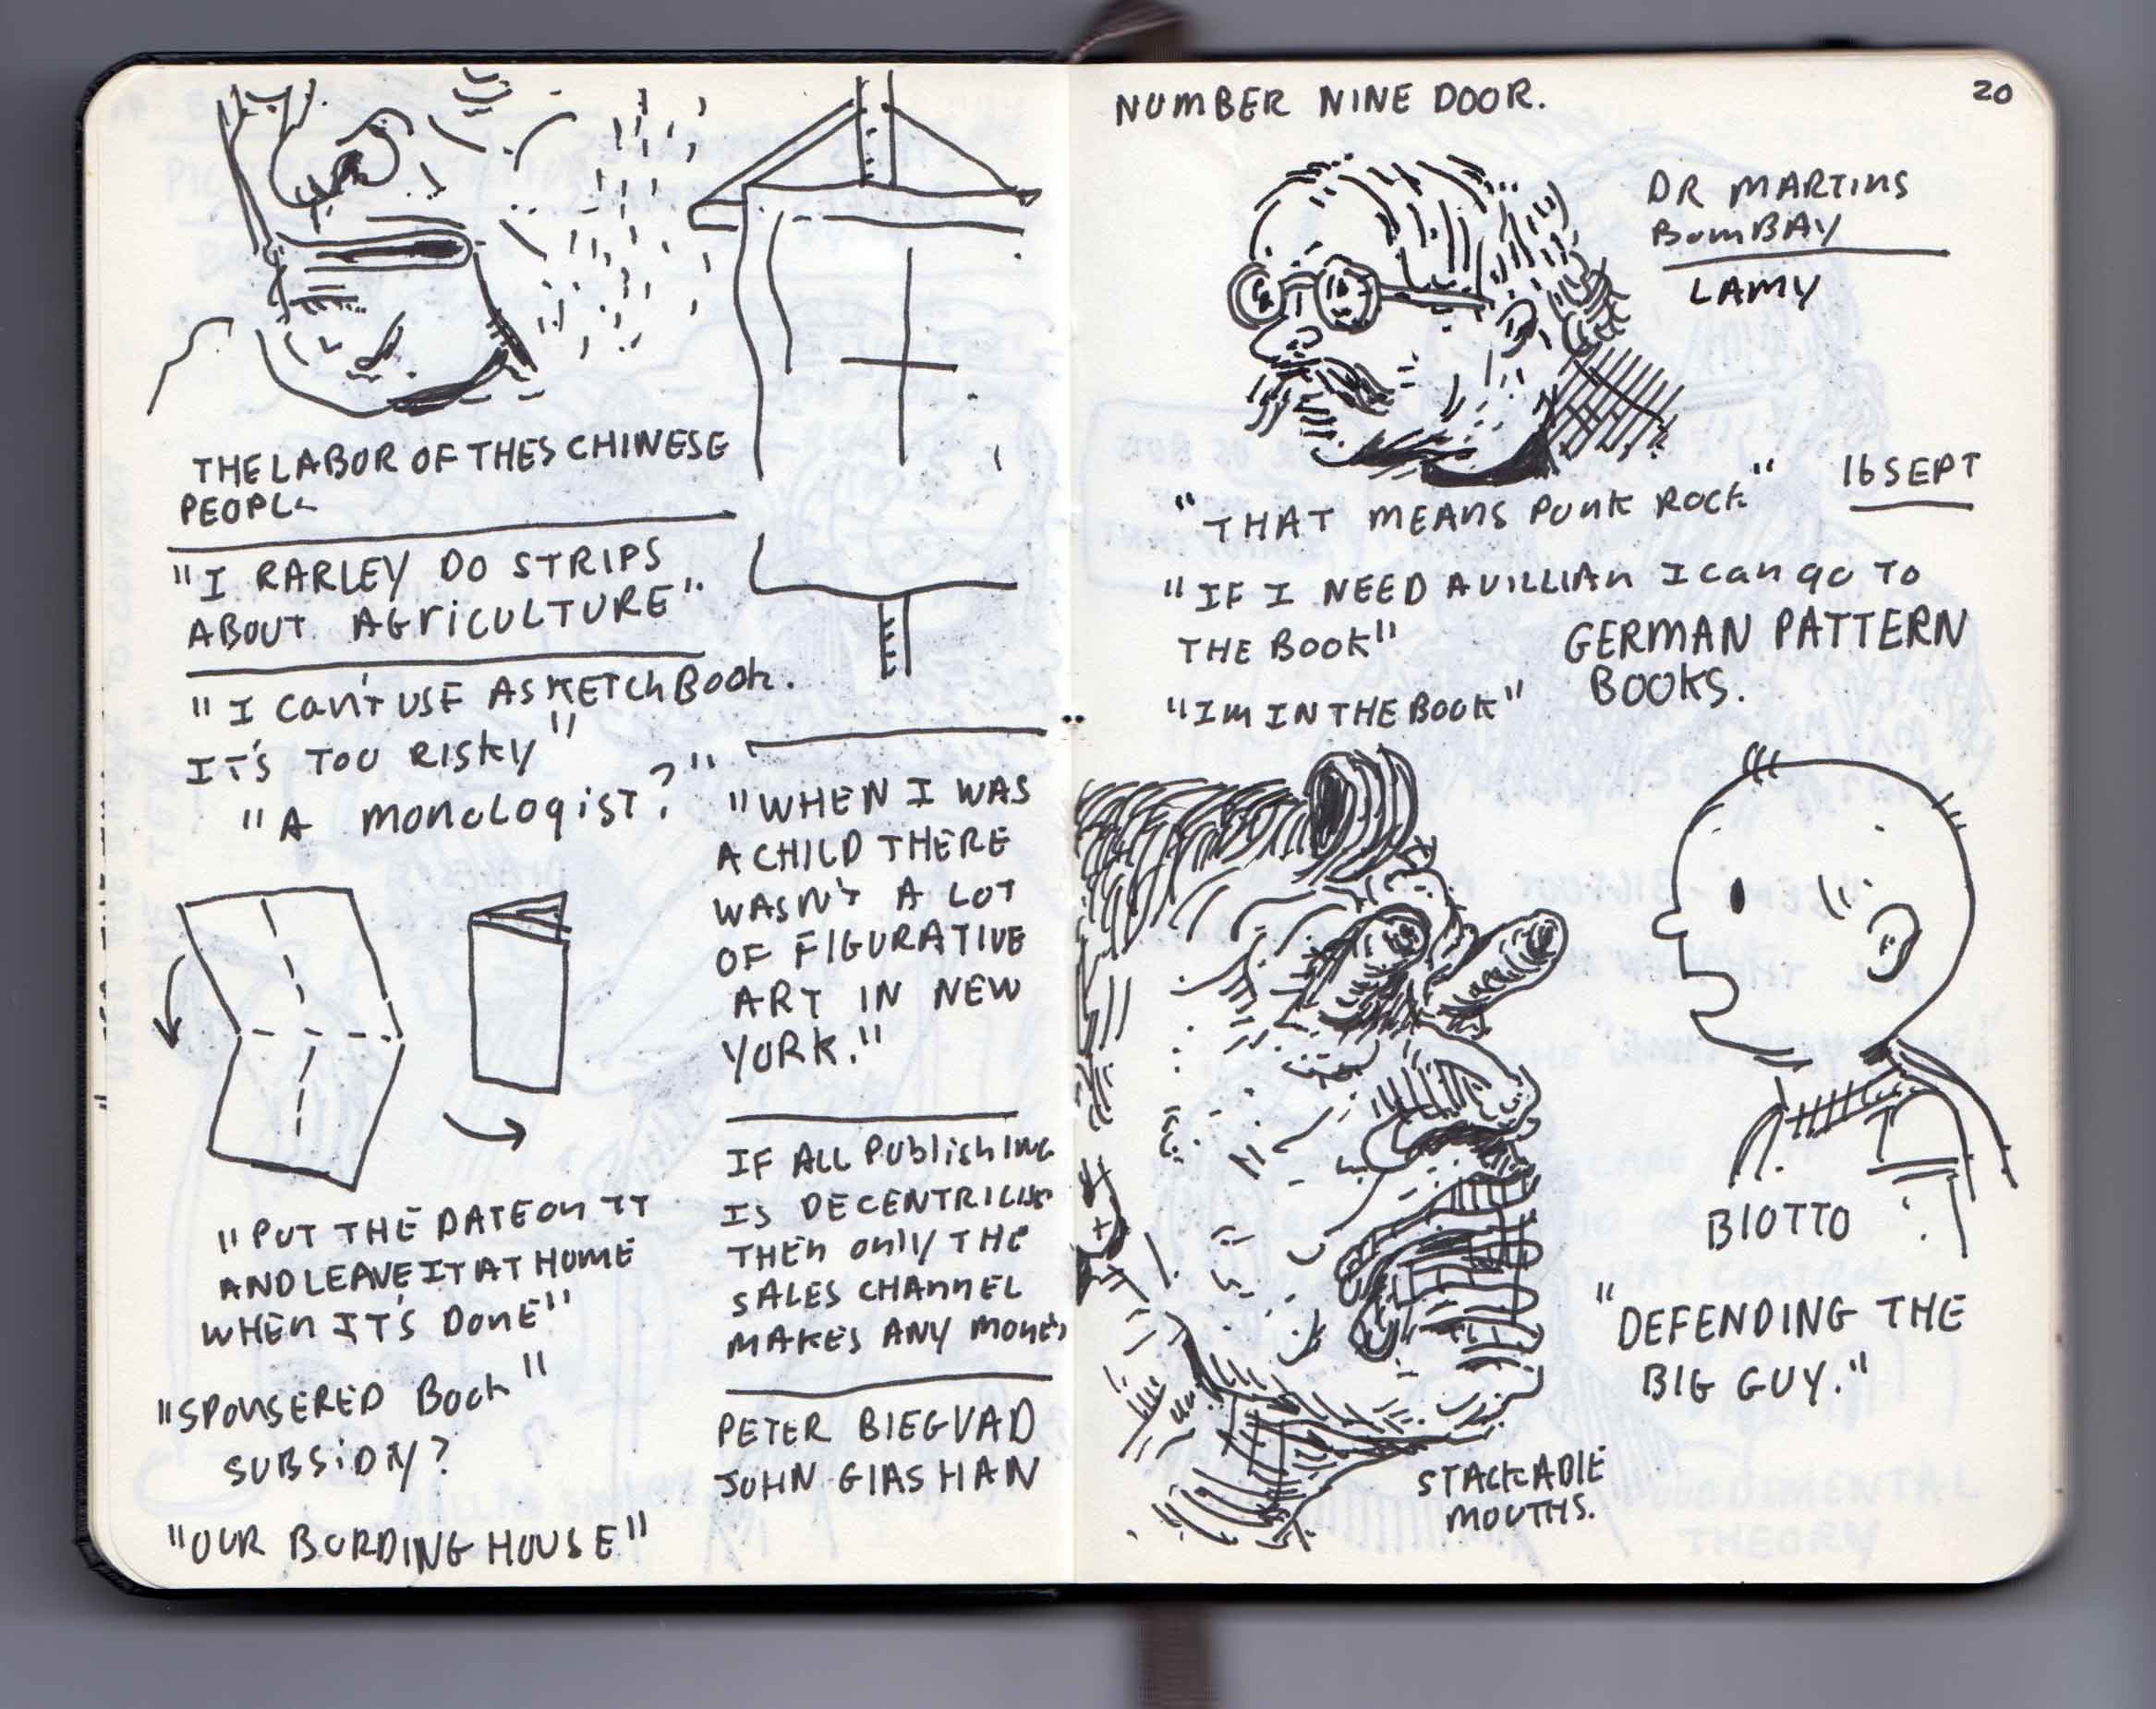 THE LABOR OF THES CHINESE
PEOPLE
"I RARLEY DO STRIPS
ABOUT AGRICULTURE".
"I CAN'T USE A SKETCHBOOK.
IT'S TOO RISKY"
"A MONOLOGIST?"
"PUT THE DATE ON IT
AND LEAVE IT AT HOME
WHEN IT'S DONE"
"SPONSERED BOOK"
SUBSIDY?
"OUR BORDING HOUSE"
"WHEN I WAS
A CHILD THERE
WASN'T A LOT
OF FIGURATIVE
ART IN NEW
YORK."
IF ALL PUBLISHING
IS
THEN ONLY THE
SALES CHANNEL
MAKES ANY MONEY
PETER BLEGVAD
JOHN GLASHAN
NUMBER NINE DOOR.
20
DR MARTINS
BOMBAY
LAMY
"THAT MEANS PUNK ROCK"
16 SEPT
"IF I NEED A VILLIAN I CAN GO TO
THE BOOK"
GERMAN PATTERN
BOOKS.
"IM IN THE BOOK"
BLOTTO
"DEFENDING THE
BIG GUY."
STACKABLE
MOUTHS.